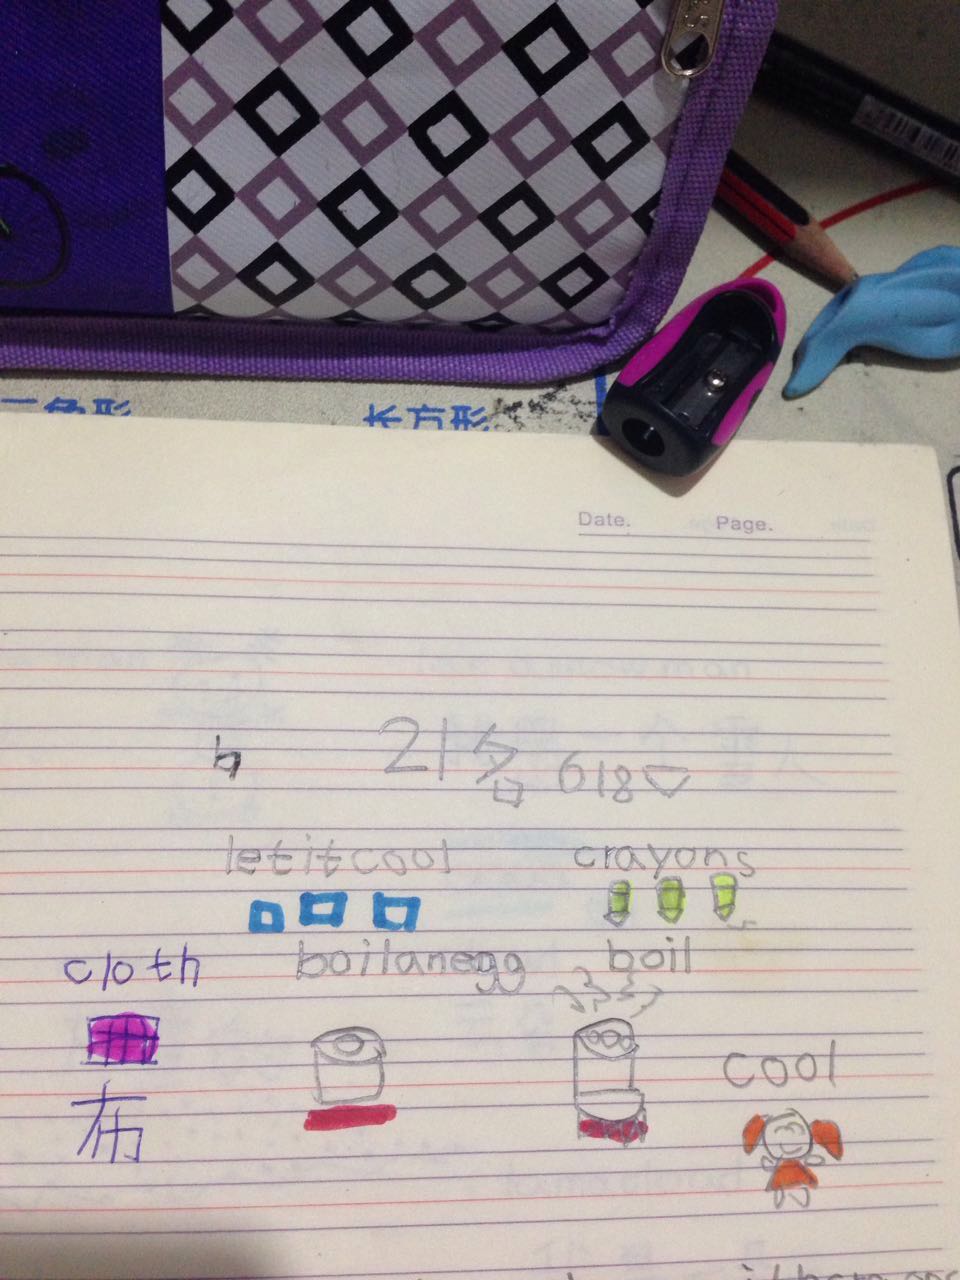 长方形
Date.    Page.
h    21名 618
letitcool    crayons
cloth    boilanegg    boil
cool
布